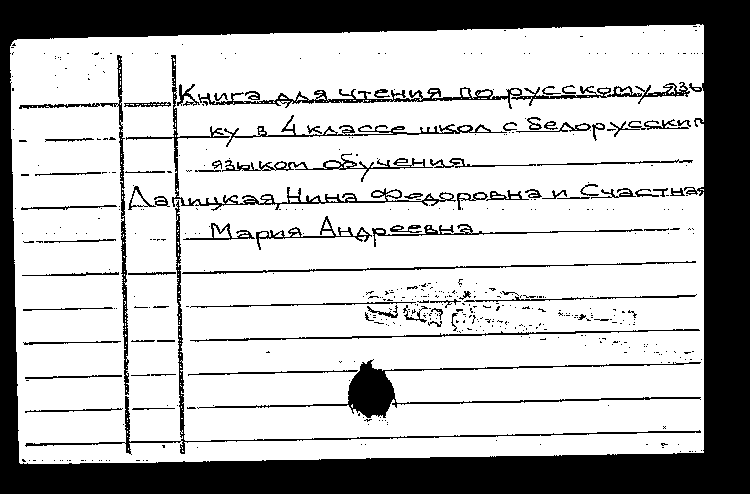 Книга для чтения по русскому язы
ку в 4 классе школ с белорусским
языком обучения.
Лапицкая, Нина Федоровна и Счастная
Мария Андреевна.